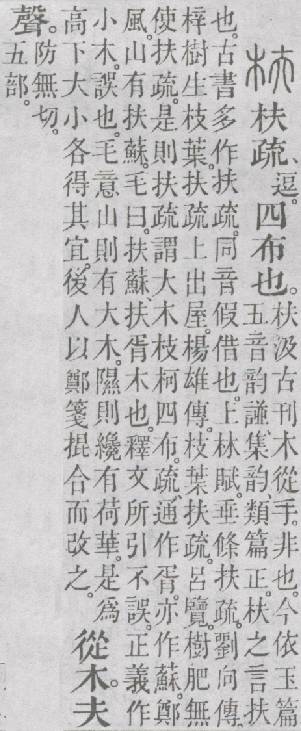 枎 枎疏、逗。四布也。枎汲古刊木從手。非也。今依玉篇
五音韵譜、集韵、類篇正。枎之言扶
也。古書多作扶疏。同音假借也。上林賦。垂條扶疏。劉向傳。
梓樹生枝葉。扶疏上出屋。楊雄傳。枝葉扶疏。呂覽。樹肥無
使扶疏。是則扶疏謂大木枝柯四布。疏通作胥。亦作蘇。鄭
風。山有扶蘇。毛曰。扶蘇、扶胥木也。釋文所引不誤。正義作
小木。誤也。毛意山則有大木。隰則纔有荷華。是爲
高下大小各得其宜。後人以鄭箋掍合而改之。從木。夫
聲。防無切。
五部。